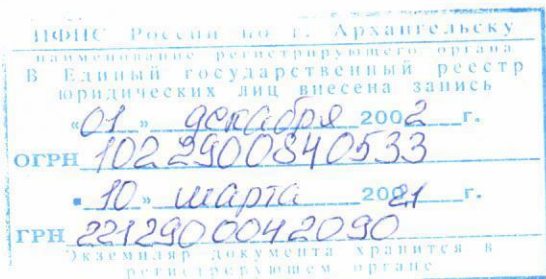 ИФНС России по г. Архангельску
наименование регистрирующего органа
В Единый государственный реестр
юридических лиц внесена запись
«01» декабря 2002 г.
ОГРН 1022900840533
«10» марта 2021 г.
ГРН 2212900042090
Экземпляр документа хранится в
регистрирующем органе